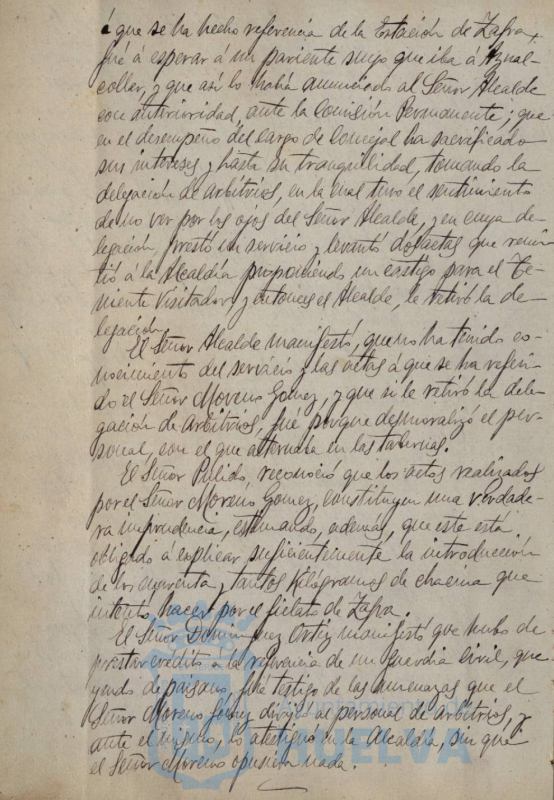 á que se ha hecho referencia de la Estación de Zafra,
fué á esperar á un pariente suyo que iba á Aznal-
collar, y que así lo había anunciado al Señor Alcalde
con anterioridad, ante la Comisión Permanente; que
en el desempeño del cargo de Concejal ha sacrificado
sus intereses y hasta su tranquilidad, tomando la
delegación de arbitrios, en la cual tuvo el sentimiento
de no ver por los ojos del Señor Alcalde, y en cuya de-
legación, prestó un servicio y levantó dos actas que remi-
tió á la Alcaldía proponiendo un castigo para el Te-
niente Visitador, y entonces el Alcalde, le retiró la de-
legación.
El Señor Alcalde manifestó, que no ha tenido co-
nocimiento del servicio y las actas á que se ha referi-
do el Señor Moreno Gomez, y que si le retiró la dele-
gación de Arbitrios, fué porque desmoralizó el per-
sonal, con el que alternaba en las tabernas.
El Señor Pulido, reconoció que los actos realizados
por el Señor Moreno Gomez, constituyen una verdade-
ra imprudencia, estimando, además, que este está
obligado á explicar suficientemente la introducción
de los cuarenta y tantos kilógramos de chacina que
intentó hacer por el fielato de Zafra.
El Señor Dominguez Ortiz manifestó que hubo de
prestar crédito á la referencia de un guardia civil, que
yendo de paisano, fué testigo de las amenazas que el
Señor Moreno Gomez dirijió al personal de arbitrios, y
ante el mismo, lo atestiguó en la Alcaldía, sin que
el Señor Moreno opusiera nada.
Ayuntamiento de
HUELVA